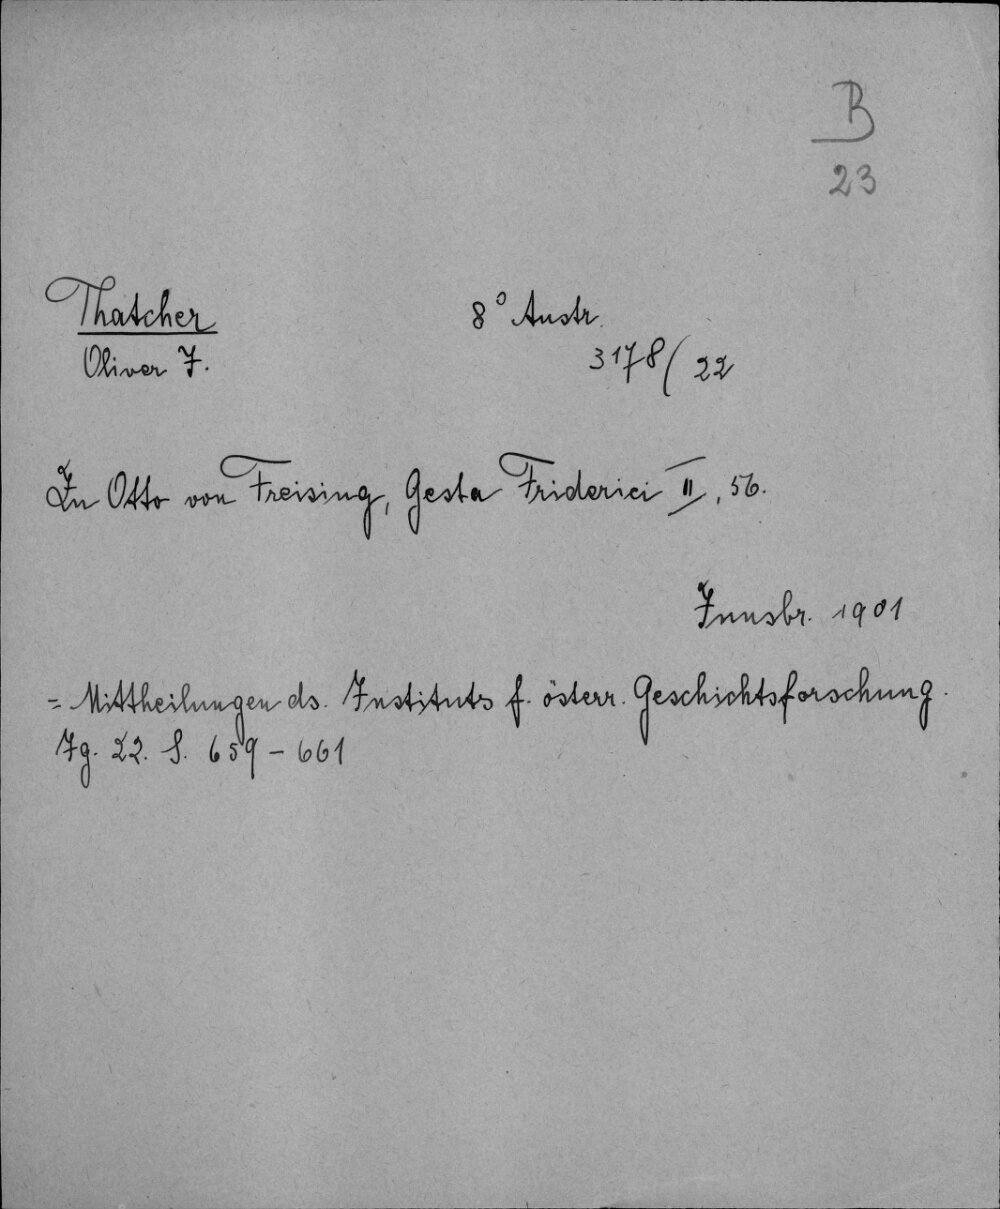 B
23
Thatcher
Oliver J.
8° Austr.
3178/22
In Otto von Freising, Gesta Friderici II, 56.
Innsbr. 1901
= Mittheilungen ds. Instituts f. österr. Geschichtsforschung.
Jg. 22. S. 659 - 661